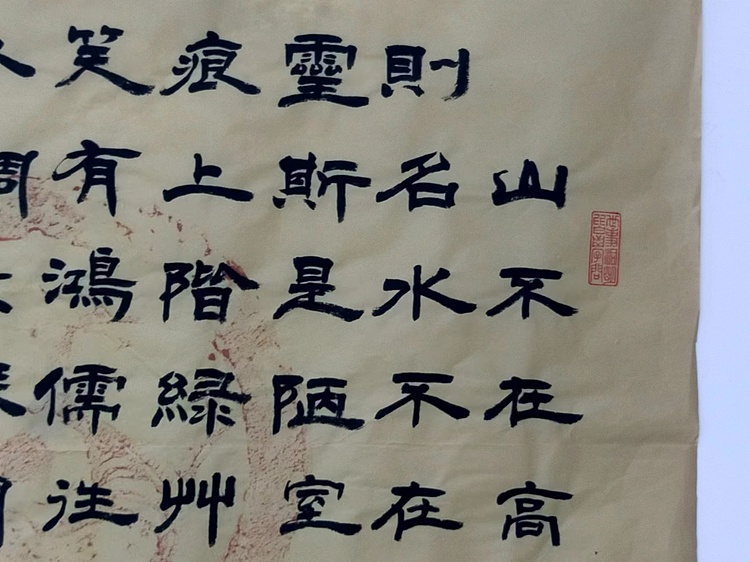 山不在高
則名水不在
靈斯是陋室
痕上階綠艸
笑有鴻儒往